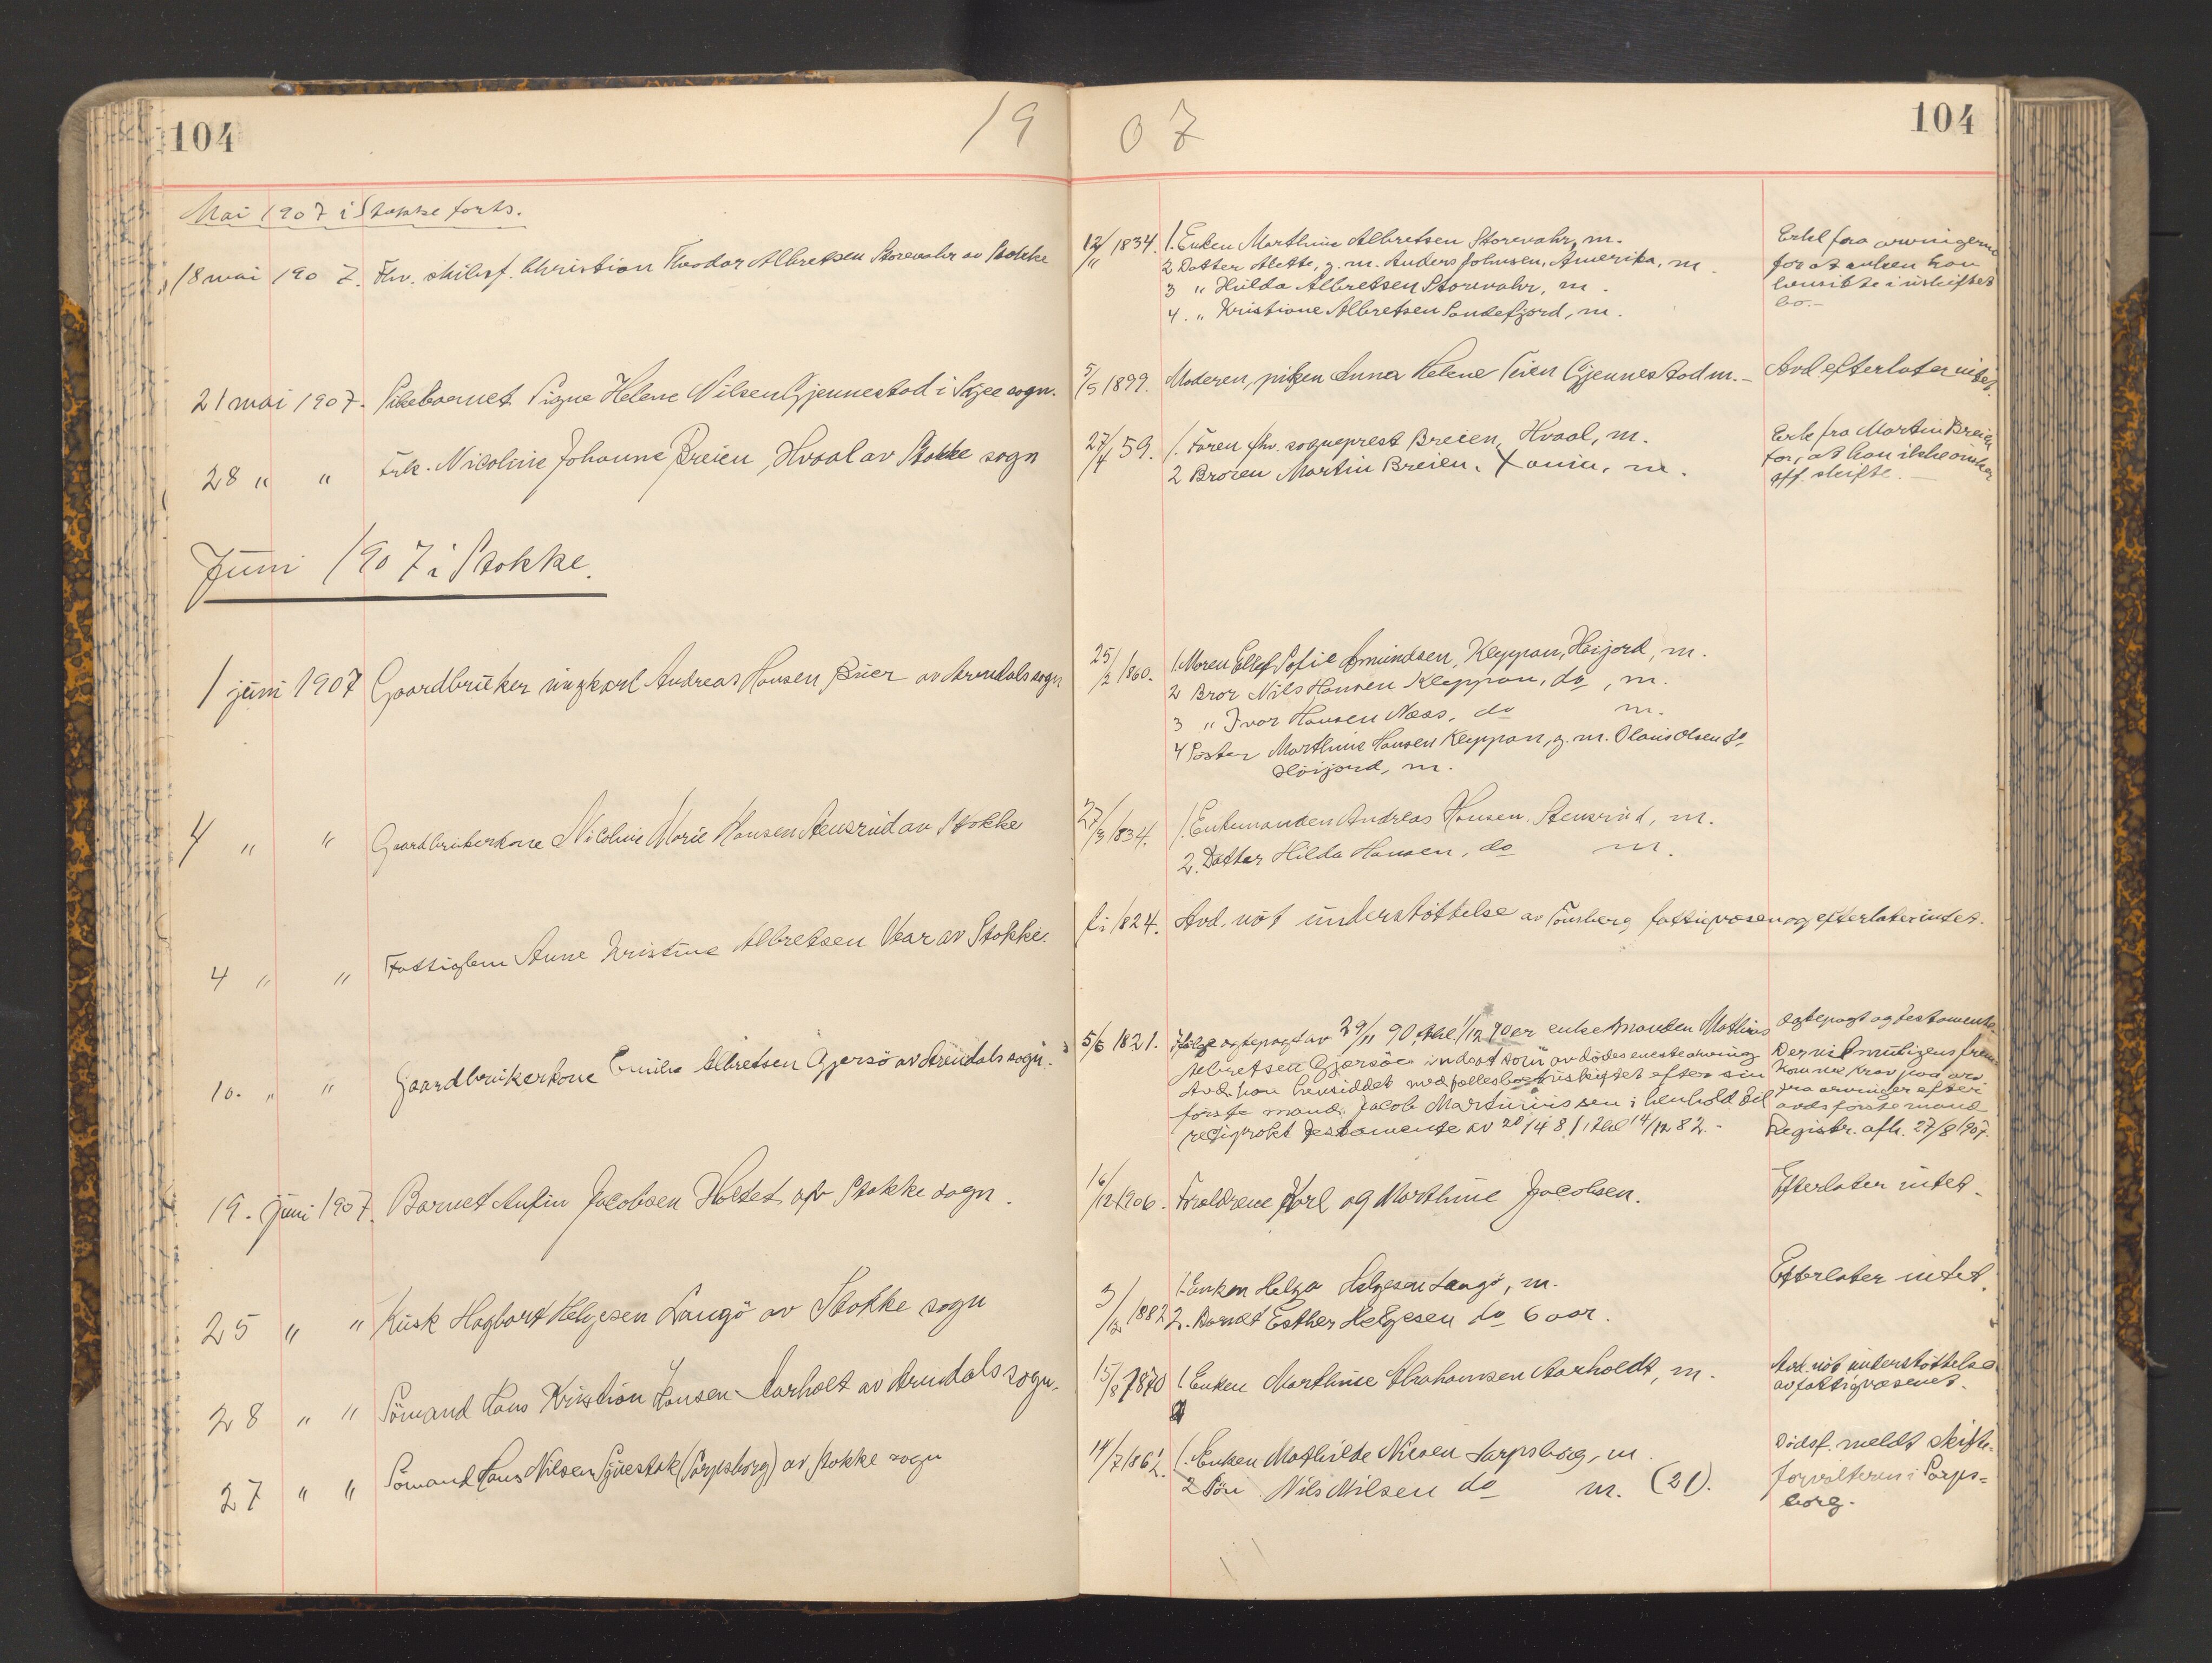 104
19
07
104
Mai 1907 i Stokke forts.
18 mai 1907. Fhv. skibsf. Christian Theodor Albretsen Storevahr av Stokke
12/11 1834. 1. Enken Marthine Albretsen Storevahr, m.
2 Datter Alette, g. m. Anders Johnsen, Amerika, m.
3 " Hilda Albretsen Storevahr, m.
4. " Kristiane Albretsen Sandefjord, m.
Erkl fra arvingerne
for at enken kan
hensitte i uskiftet
bo.-
21 mai 1907. Pikebarnet Signe Helene Nilsen Gjennestad i Skjee sogn.
5/5 1899. Moderen, piken Anna Helene Teien Gjennestad m.-
Avd efterlater intet.
28 " " Frk. Nicoline Johanne Breien, Hvaal av Stokke sogn
27/4 59. 1. Faren fhv. sogneprest Breien, Hvaal, m.
2 Broren Martin Breien, m.
Erkl fra Martin Breien
for, at han ikke ønsker
off. skifte.-
Juni 1907 i Stokke.
1 juni 1907 Gaardbruker ungkarl Andreas Hansen Buer av Arendals sogn
25/2 1860. 1. Moren Ellef Sofie Amundsen, Kleppan, Høijord, m.
2 Bror Nils Hansen Kleppan, do, m.
3 " Ivar Hansen Næss, do m.
4 Søster Marthine Hansen Kleppan, g. m. Olaus Olsen do
Høijord, m.
4 " " Gaardbrukerkone Nicoline Marie Hansen Stensrud av Stokke
27/3 1834. 1. Enkemanden Andreas Hansen, Stensrud, m.
2. Datter Hilda Hansen, do m.
4 " " Fattiglem Anne Kristine Albretsen Vear av Stokke.
fi 1824. Avd. nøt understøttelse av Tønsberg fattigvæsen og efterlater intet.
10. " " Gaardbrukerkone Emilie Albretsen Gjersø av Arendals sogn.
5/6 1821. Ifølge egtepagt av 29/11 90 thl. 1/12 90 er enkemanden Mathias
Albretsen Gjersøe indsat som avdødes eneste arving
Avd. har hensiddet med fællesboet uskiftet efter sin
første mand Jacob Martiniussen i henhold til
resiprokt Testamente av 20/4 81, thl 14/12 82.-
Egtepagt og testamente.
Der vil muligens frem
komme krav paa arv
fra arvinger efter
avds første mand
Registr. afh. 27/8 1907.
19. juni 1907. Barnet Anfin Jacobsen Holtet av Stokke sogn.
16/12 1906. Forældrene Karl og Marthine Jacobsen.
Efterlater intet.
25 " " Kusk Hagbart Helgesen Langø av Stokke sogn
3/12 1882 1. Enken Helga Helgesen Langø, m.
2. Barnet Esther Helgesen do 6 aar.
Efterlater intet.
28 " " Sømand Hans Kristian Hansen Aarholt av Arendals sogn.
15/8 1870 1. Enken Marthine Abrahamsen Aarholdt, m.
Avd. nøt understøttelse
av fattigvæsenet.
27 " " Sømand Hans Nilsen (Sarpsborg) av Stokke sogn
14/7 1862. 1. Enken Mathilde Nilsen Sarpsborg, m.
2 Søn Nils Nilsen do m. (21).
Dødsf. meldt skifte-
forvalteren i Sarps-
borg.